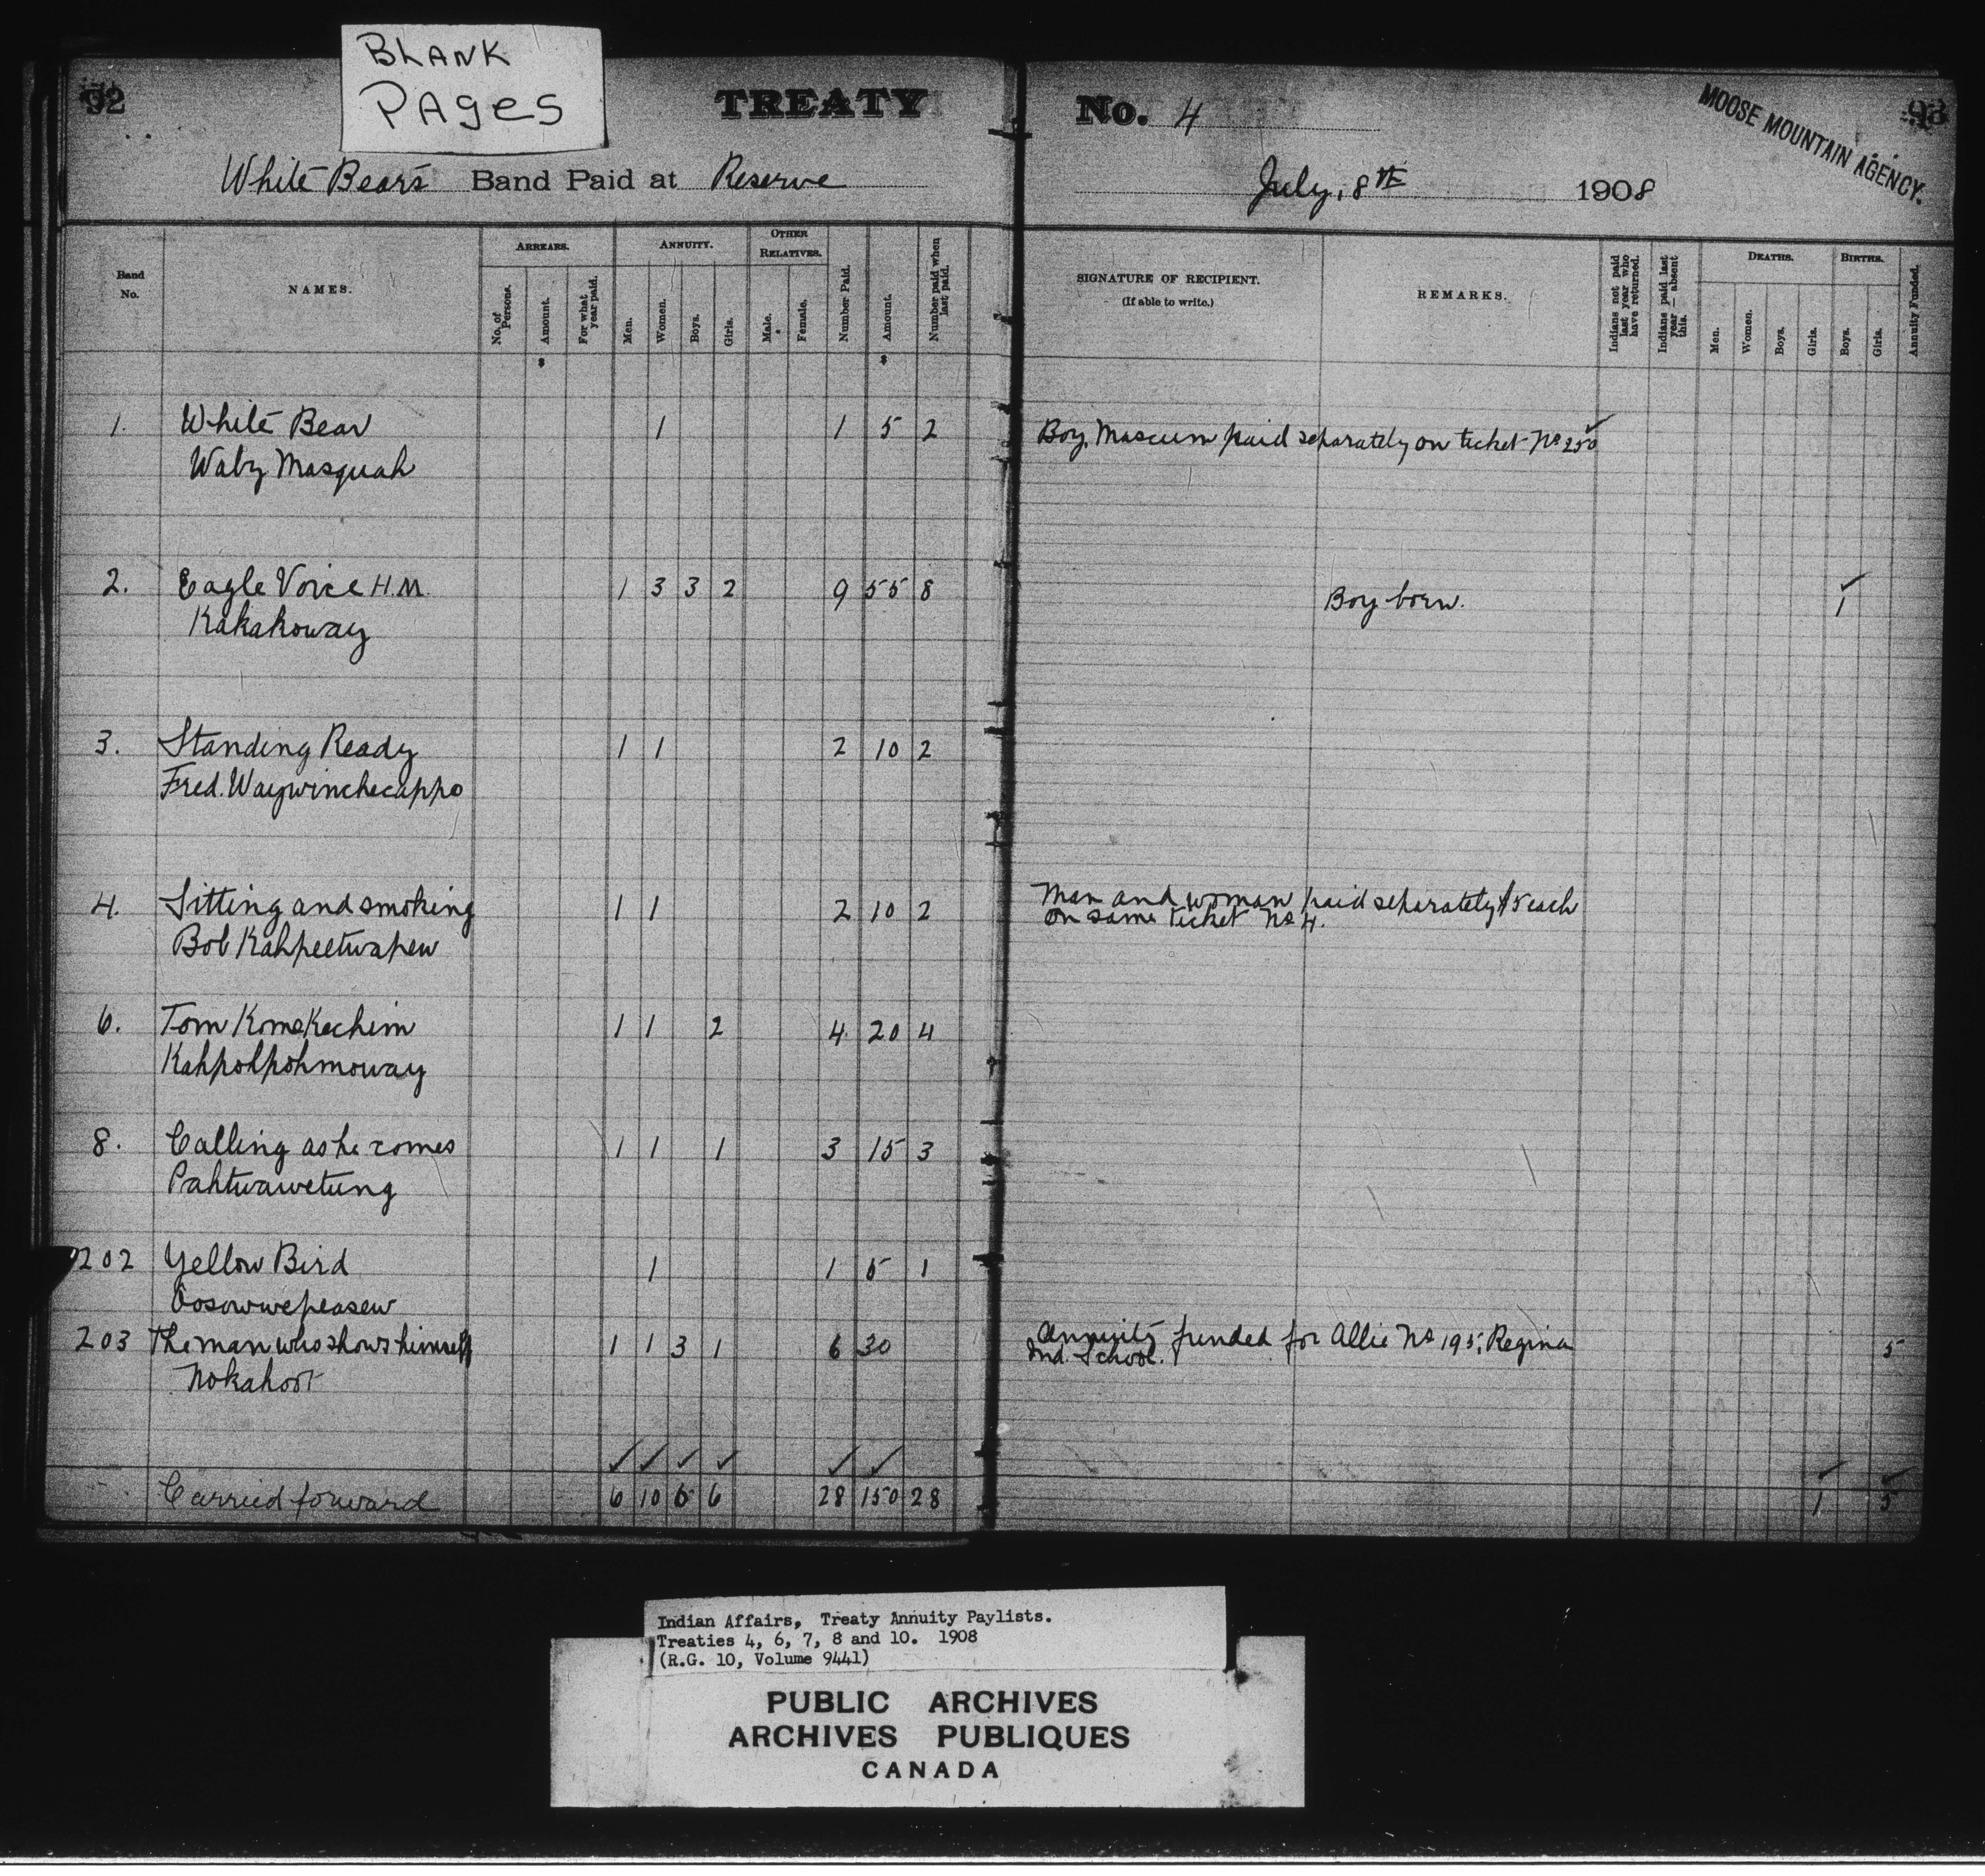 BLANK
PAGES
92
TREATY
No. 4
MOOSE MOUNTAIN AGENCY.
93
White Bear's Band Paid at Reserve
July, 8th 1908
Band No.
NAMES.
ARREARS.
No. of Persons.
Amount.
For what year paid.
ANNUITY.
Men.
Women.
Boys.
Girls.
OTHER RELATIVES.
Male.
Female.
Number Paid.
Amount.
Number paid when last paid.
SIGNATURE OF RECIPIENT.
(If able to write.)
REMARKS.
Indians not paid last year who have returned.
Indians paid last year — absent this.
DEATHS.
Men.
Women.
Boys.
Girls.
BIRTHS.
Boys.
Girls.
Annuity Funded.
$ $
1. White Bear 1 1 5 2 Boy, Mascum paid separately on ticket No 250
Waby Masquah
2. Eagle Voice H.M. 1 3 3 2 9 55 8 Boy born. 1
Kakakoway
3. Standing Ready 1 1 2 10 2
Fred. Waywinchecappo
4. Sitting and smoking 1 1 2 10 2 Man and woman paid separately $5 each
on same ticket No 4.
Bob Kahpeetwapew
6. Tom Komokechim 1 1 2 4 20 4
Kahpohpohmoway
8. Calling as he comes 1 1 1 3 15 3
Pahtwawetung
202 Yellow Bird 1 1 5 1
Oosowwepeasew
203 The man who shows himself 1 1 3 1 6 30 Annuity funded for Allie No 195, Regina 5
Ind. School.
Nokahoot
Carried forward 6 10 6 6 28 150 28 1 5
Indian Affairs, Treaty Annuity Paylists.
Treaties 4, 6, 7, 8 and 10. 1908
(R.G. 10, Volume 9441)
PUBLIC ARCHIVES
ARCHIVES PUBLIQUES
CANADA